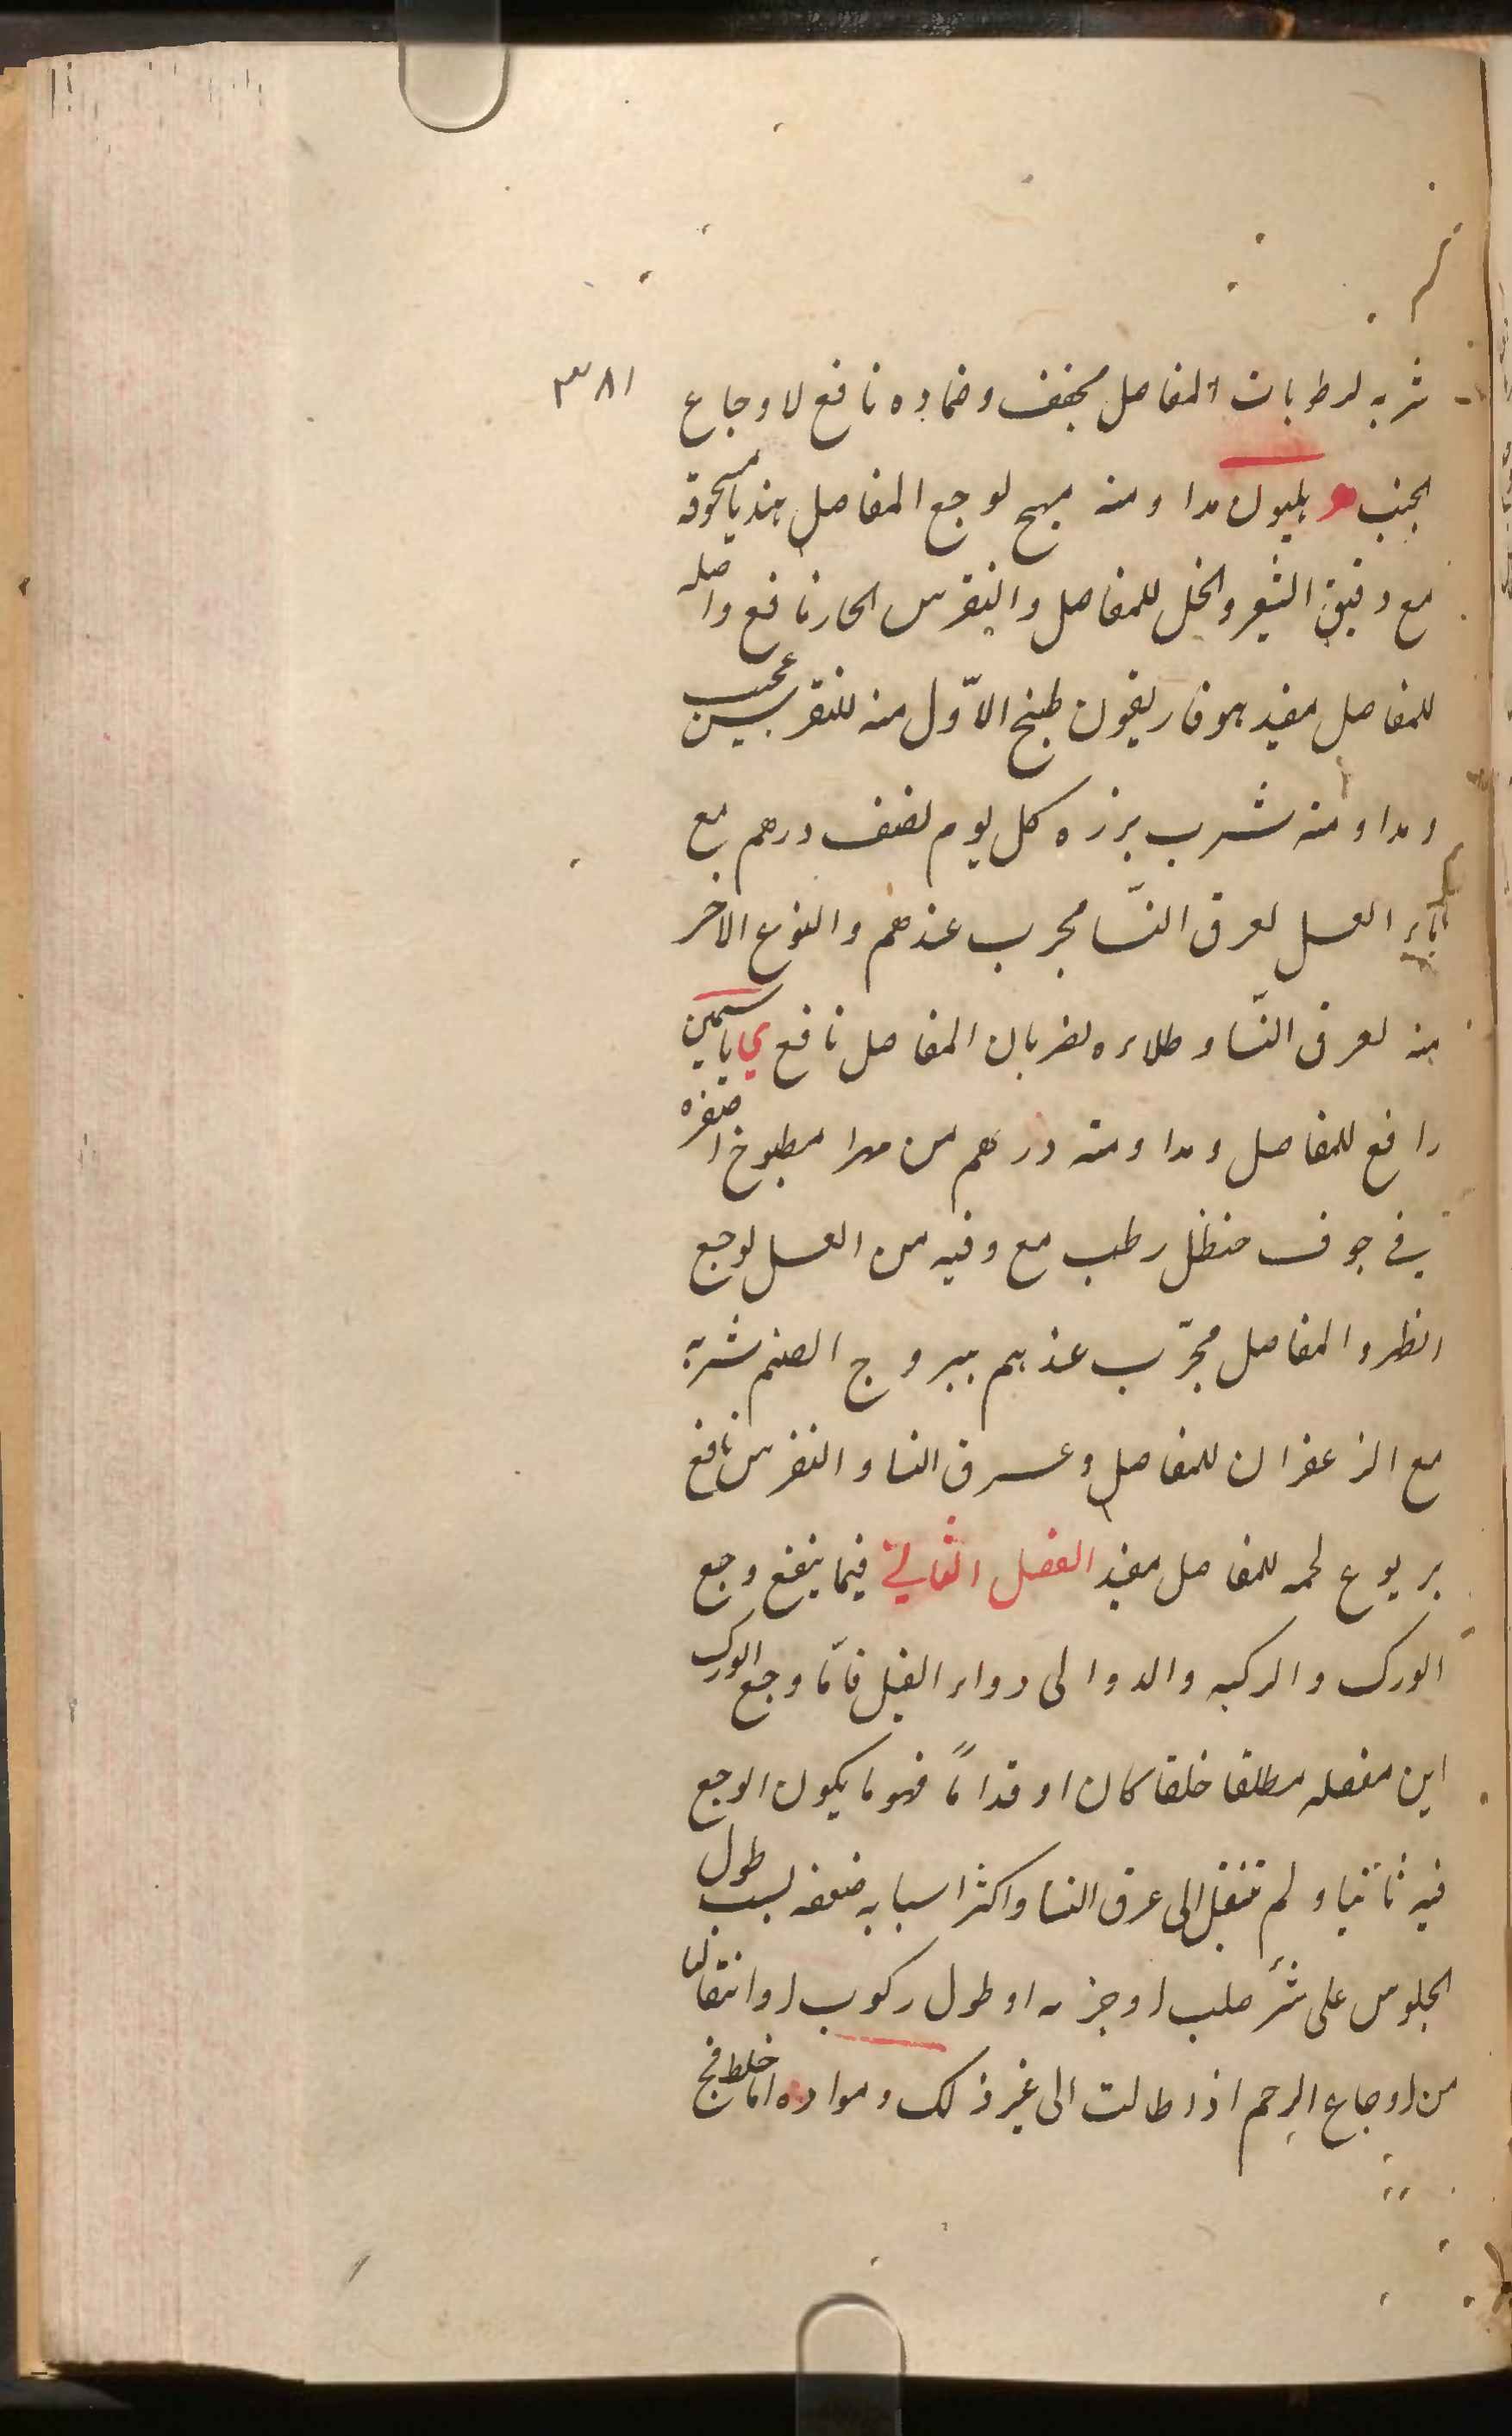 ٣٨١
شربه لرطوبات المفاصل مجفف وضماده نافع لاوجاع
الجنب ه هليون مداومته مبهج لوجع المفاصل هندبا مسحوقه
مع دقيق الشعير والخل للمفاصل والنقرس الحار نافع واصله
للمفاصل مفيد هوفاريقون طبخ الاوّل منه للنقرسين عجيب
ومداومته شرب بزره كل يوم نصف درهم مع
ماء العسل لعرق النسّا مجرب عندهم والنوع الاخر
منه لعرق النسّا وطلاءه لضربان المفاصل نافع ي ياسمين
رافع للمفاصل ومداومته درهم من مطبوخ اصفره
في جوف حنظل رطب مع وقيه من العسل لوجع
الظهر والمفاصل مجرّب عندهم يبروج الصنم شربه
مع الزعفران للمفاصل وعرق النسا والنقرس نافع
يربوع لحمه للمفاصل مفيد الفصل الثاني فيما ينفع وجع
الورك والركبه والدوالى وداء الفيل فامّا وجع الورك
اين مفصله مطلقا خلفا كان او قداماً فهو ما يكون الوجع
فيه ثابتا ولم تنتقل الى عرق النسا واكثر اسبابه ضعفه بسبب طول
الجلوس على شئ صلب او او طول ركوب او انتقال
من اوجاع الرحم اذا طالت الى غير ذلك ومواده اما خلط فج